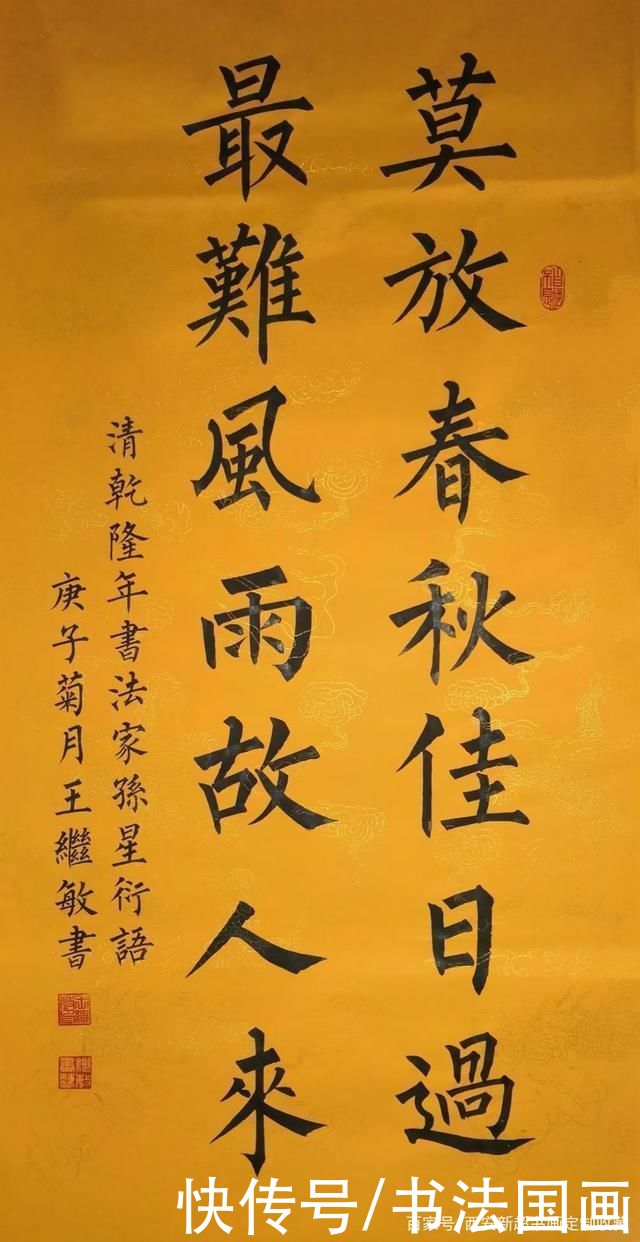 莫放春秋佳日過
最難風雨故人來
清乾隆年書法家孫星衍語
庚子菊月王繼敏書
快传号/书法国画